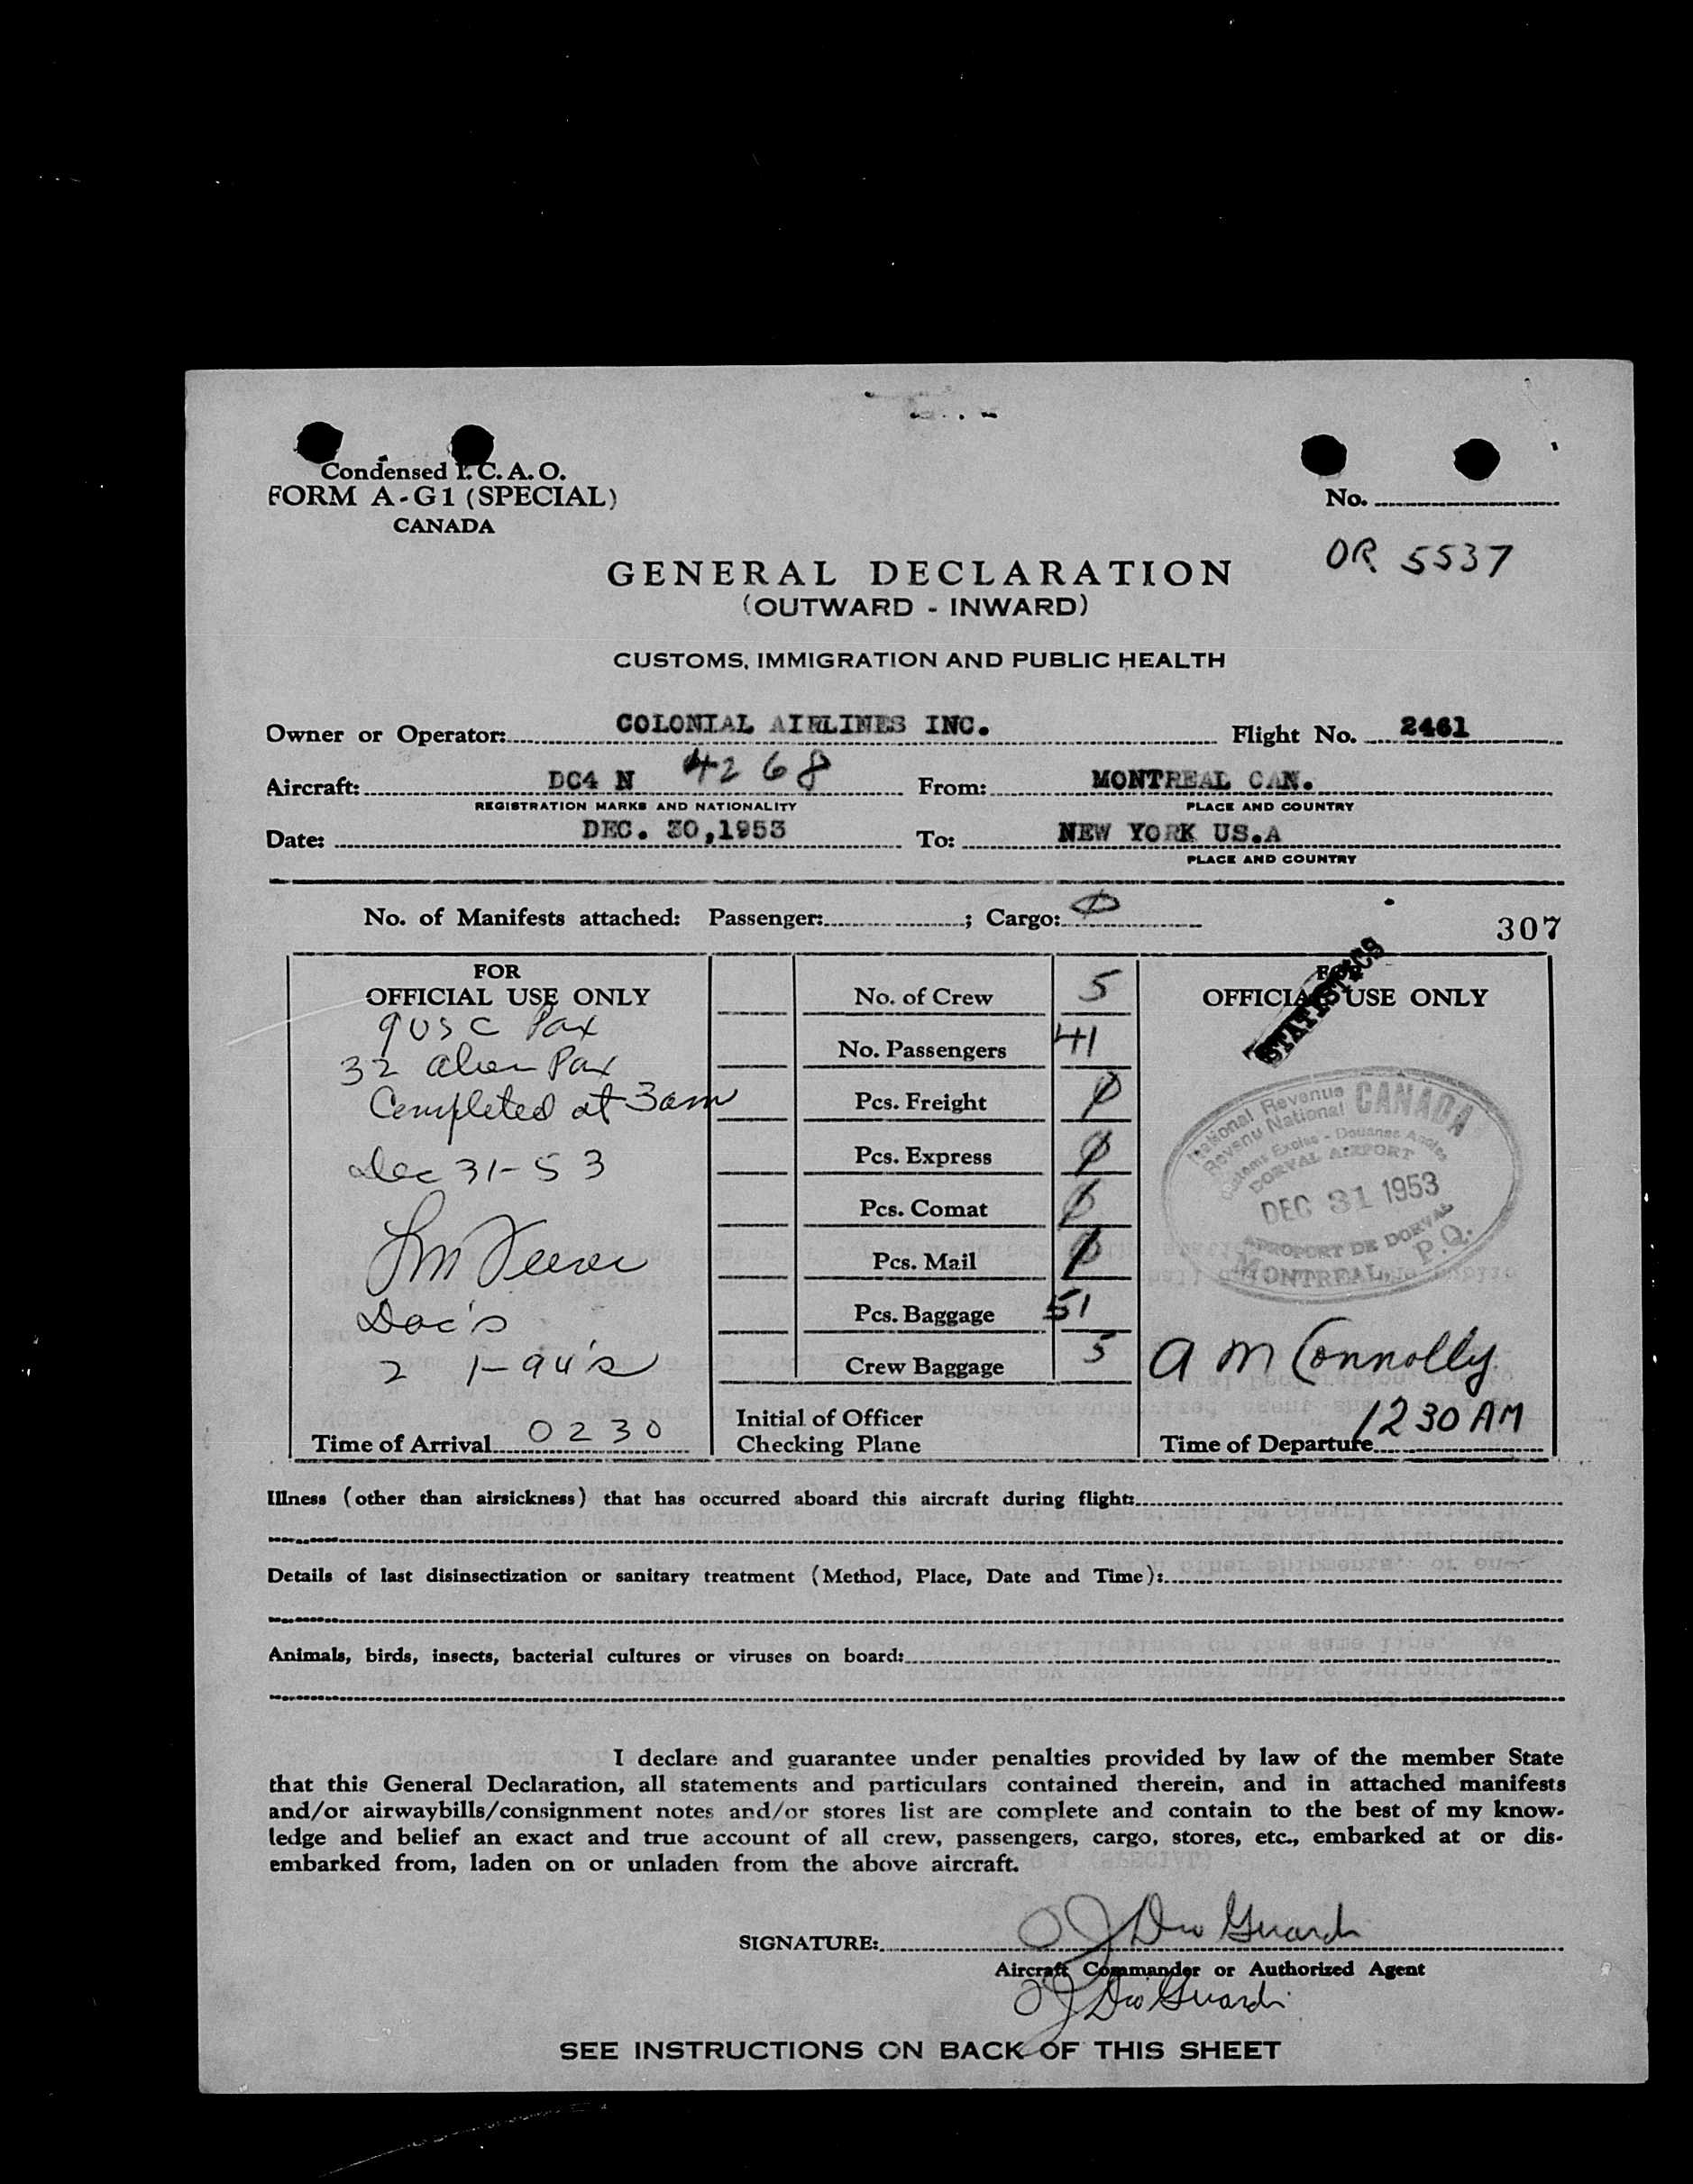 Condensed I.C.A.O.
FORM A-G1 (SPECIAL)
CANADA
No.
OR 5537
GENERAL DECLARATION
(OUTWARD - INWARD)
CUSTOMS, IMMIGRATION AND PUBLIC HEALTH
Owner or Operator: COLONIAL AIRLINES INC. Flight No. 2461
Aircraft: DC4 N 4268 From: MONTREAL CAN.
REGISTRATION MARKS AND NATIONALITY PLACE AND COUNTRY
Date: DEC. 30,1953 To: NEW YORK US.A
PLACE AND COUNTRY
No. of Manifests attached: Passenger: ; Cargo: Ø
307
FOR
OFFICIAL USE ONLY
9 USC Pax
32 alien Pax
Completed at 3am
Dec 31-53
Doc's
2 I-94's
Time of Arrival 0230
No. of Crew 5
No. Passengers 41
Pcs. Freight Ø
Pcs. Express Ø
Pcs. Comat Ø
Pcs. Mail Ø
Pcs. Baggage 51
Crew Baggage 5
Initial of Officer
Checking Plane
FOR
OFFICIAL USE ONLY
STATISTICS
National Revenue CANADA
Revenu National
Customs Excise - Douanes Accises
DORVAL AIRPORT
DEC 31 1953
AEROPORT DE DORVAL
MONTREAL, P.Q.
A M Connolly
Time of Departure 1230 AM
Illness (other than airsickness) that has occurred aboard this aircraft during flight:
Details of last disinsectization or sanitary treatment (Method, Place, Date and Time):
Animals, birds, insects, bacterial cultures or viruses on board:
I declare and guarantee under penalties provided by law of the member State
that this General Declaration, all statements and particulars contained therein, and in attached manifests
and/or airwaybills/consignment notes and/or stores list are complete and contain to the best of my know-
ledge and belief an exact and true account of all crew, passengers, cargo, stores, etc., embarked at or dis-
embarked from, laden on or unladen from the above aircraft.
SIGNATURE:
Aircraft Commander or Authorized Agent
SEE INSTRUCTIONS ON BACK OF THIS SHEET